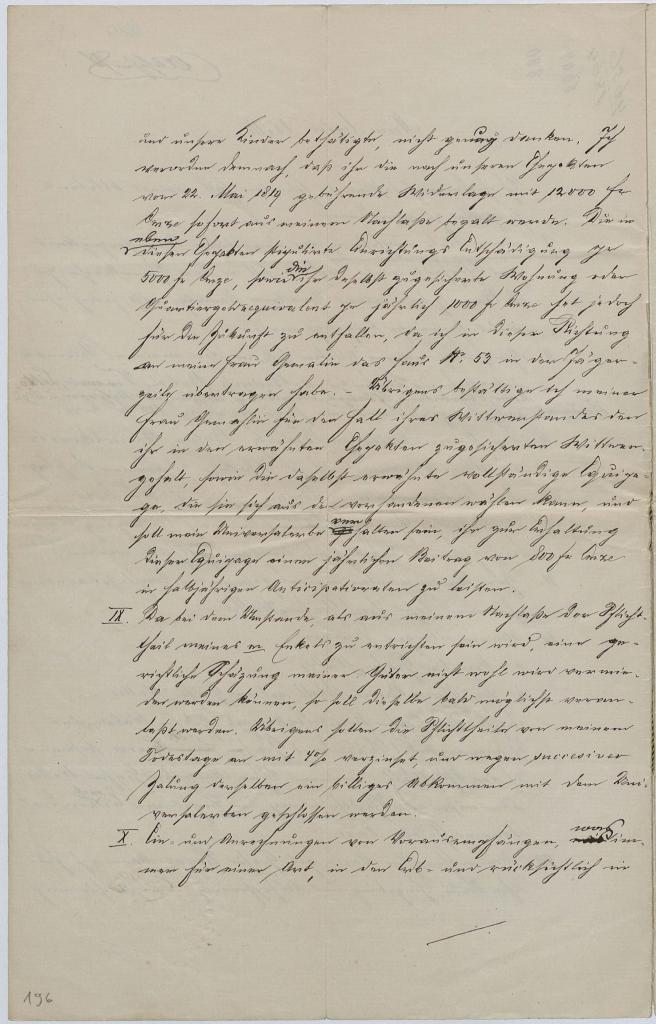 und unsere Kinder bethätigte, nicht genug danken. Ich
verordne demnach, daß ihr die nach unseren Ehepakten
vom 22. Mai 1819 gebührende Widerlage mit 12000 fr
Onze sofort aus meinem Nachlaße bezalt werde. Die in
eben
diesen Ehepakten stipulirte Einrichtungs Entschädigung pr
die
5000 fr Onze, sowie ihr daselbst zugesicherte Wohnung oder
Quartiergeldaequivalent pr jährlich 1000 fr Onze hat jedoch
für die Zukunft zu entfallen, da ich in dieser Richtung
an meine Frau Gemalin das Haus No. 53 in der Jäger-
zeile übertragen habe. – Übrigens bestättige ich meiner
Frau Gemahlin für den Fall ihres Wittwenstandes den
ihr in den erwähnten Ehepakten zugesicherten Wittwen-
gehalt, sowie die daselbst erwähnte vollständige Equipa-
ge, die sie sich aus den vorhandenen wählen kann, und
ver
soll mein Universalerbe halten sein, ihr zur Erhaltung
dieser Equipage einen jährlichen Beitrag von 800 fr Onze
in halbjährigen Anticipativraten zu leisten.
IX. Da bei dem Umstande, als aus meinem Nachlaße der Pflicht-
theil meines m. Enkels zu entrichten sein wird, eine ge-
richtliche Schäzung meiner Güter nicht wohl wird vermie-
den werden können, so soll dieselbe bald möglichst veran-
laßt werden. Übrigens sollen die Pflichttheile von meinem
Todestage an mit 4% verzinset, und wegen successiver
Zalung derselben ein billiges Abkommen mit dem Uni-
versalerben geschlossen werden.
was
X. Ein- und Anrechnungen von Vorausempfängen, im-
mer für einer Art, in den Erb- und rücksichtlich in
196